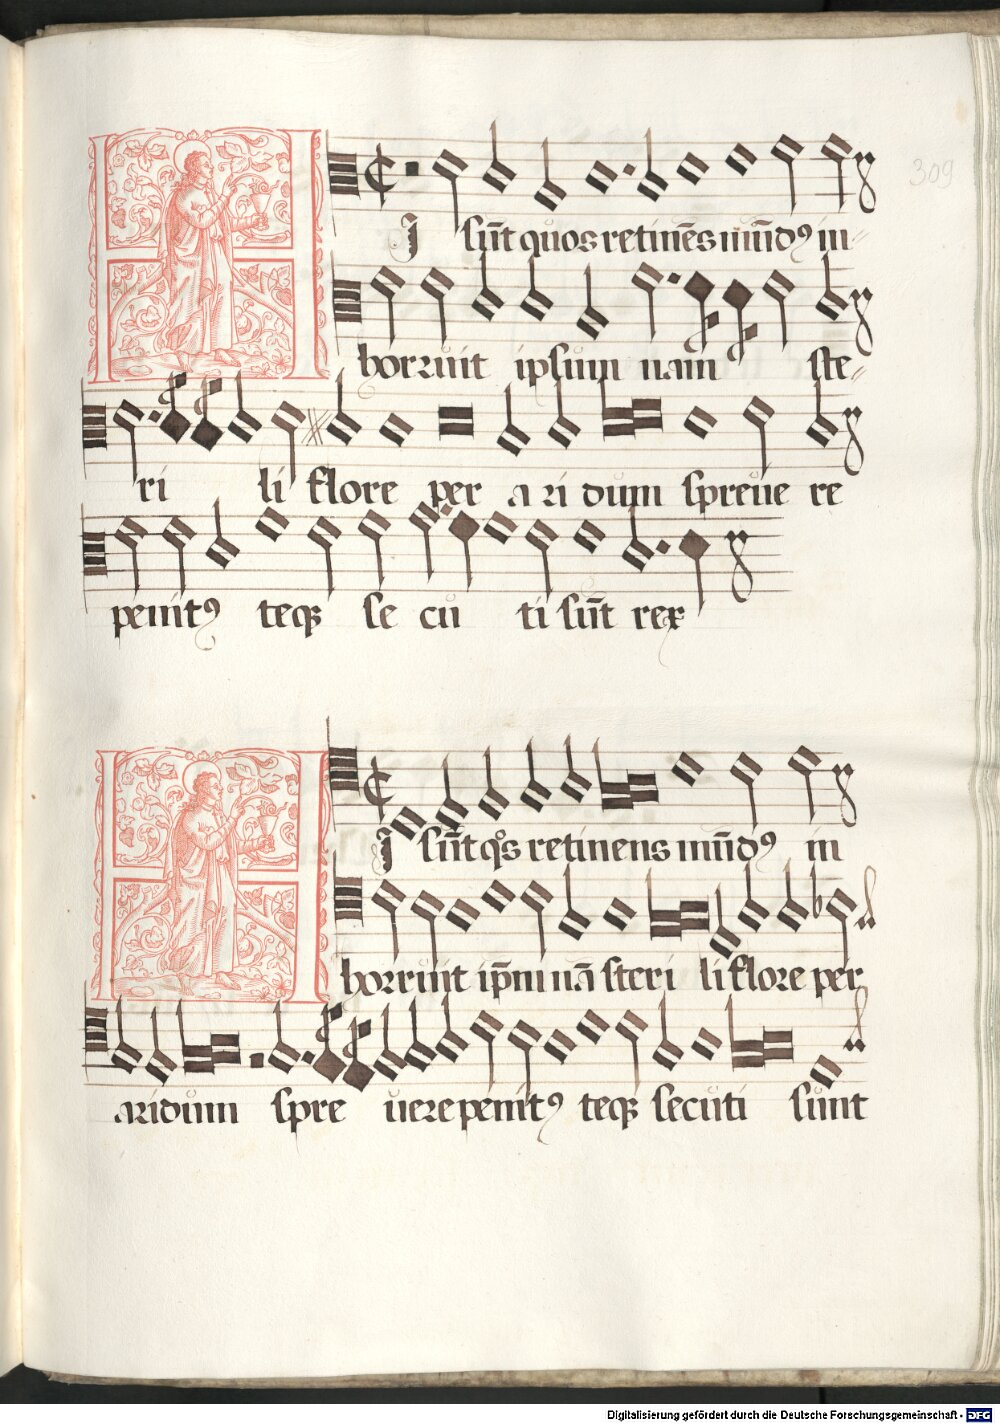 309
HI sūt quos retinēs mūdꝰ in-
horruit ipsum nam ste-
ri li flore per a ri dum spreue re
penitꝰ teqꝫ se cu ti sūt rex
HI sūt qͦs retinens mūdꝰ in
horruit ip̄m nā steri li flore per
aridum spre uere penitꝰ teqꝫ secuti sunt
Digitalisierung gefördert durch die Deutsche Forschungsgemeinschaft - DFG